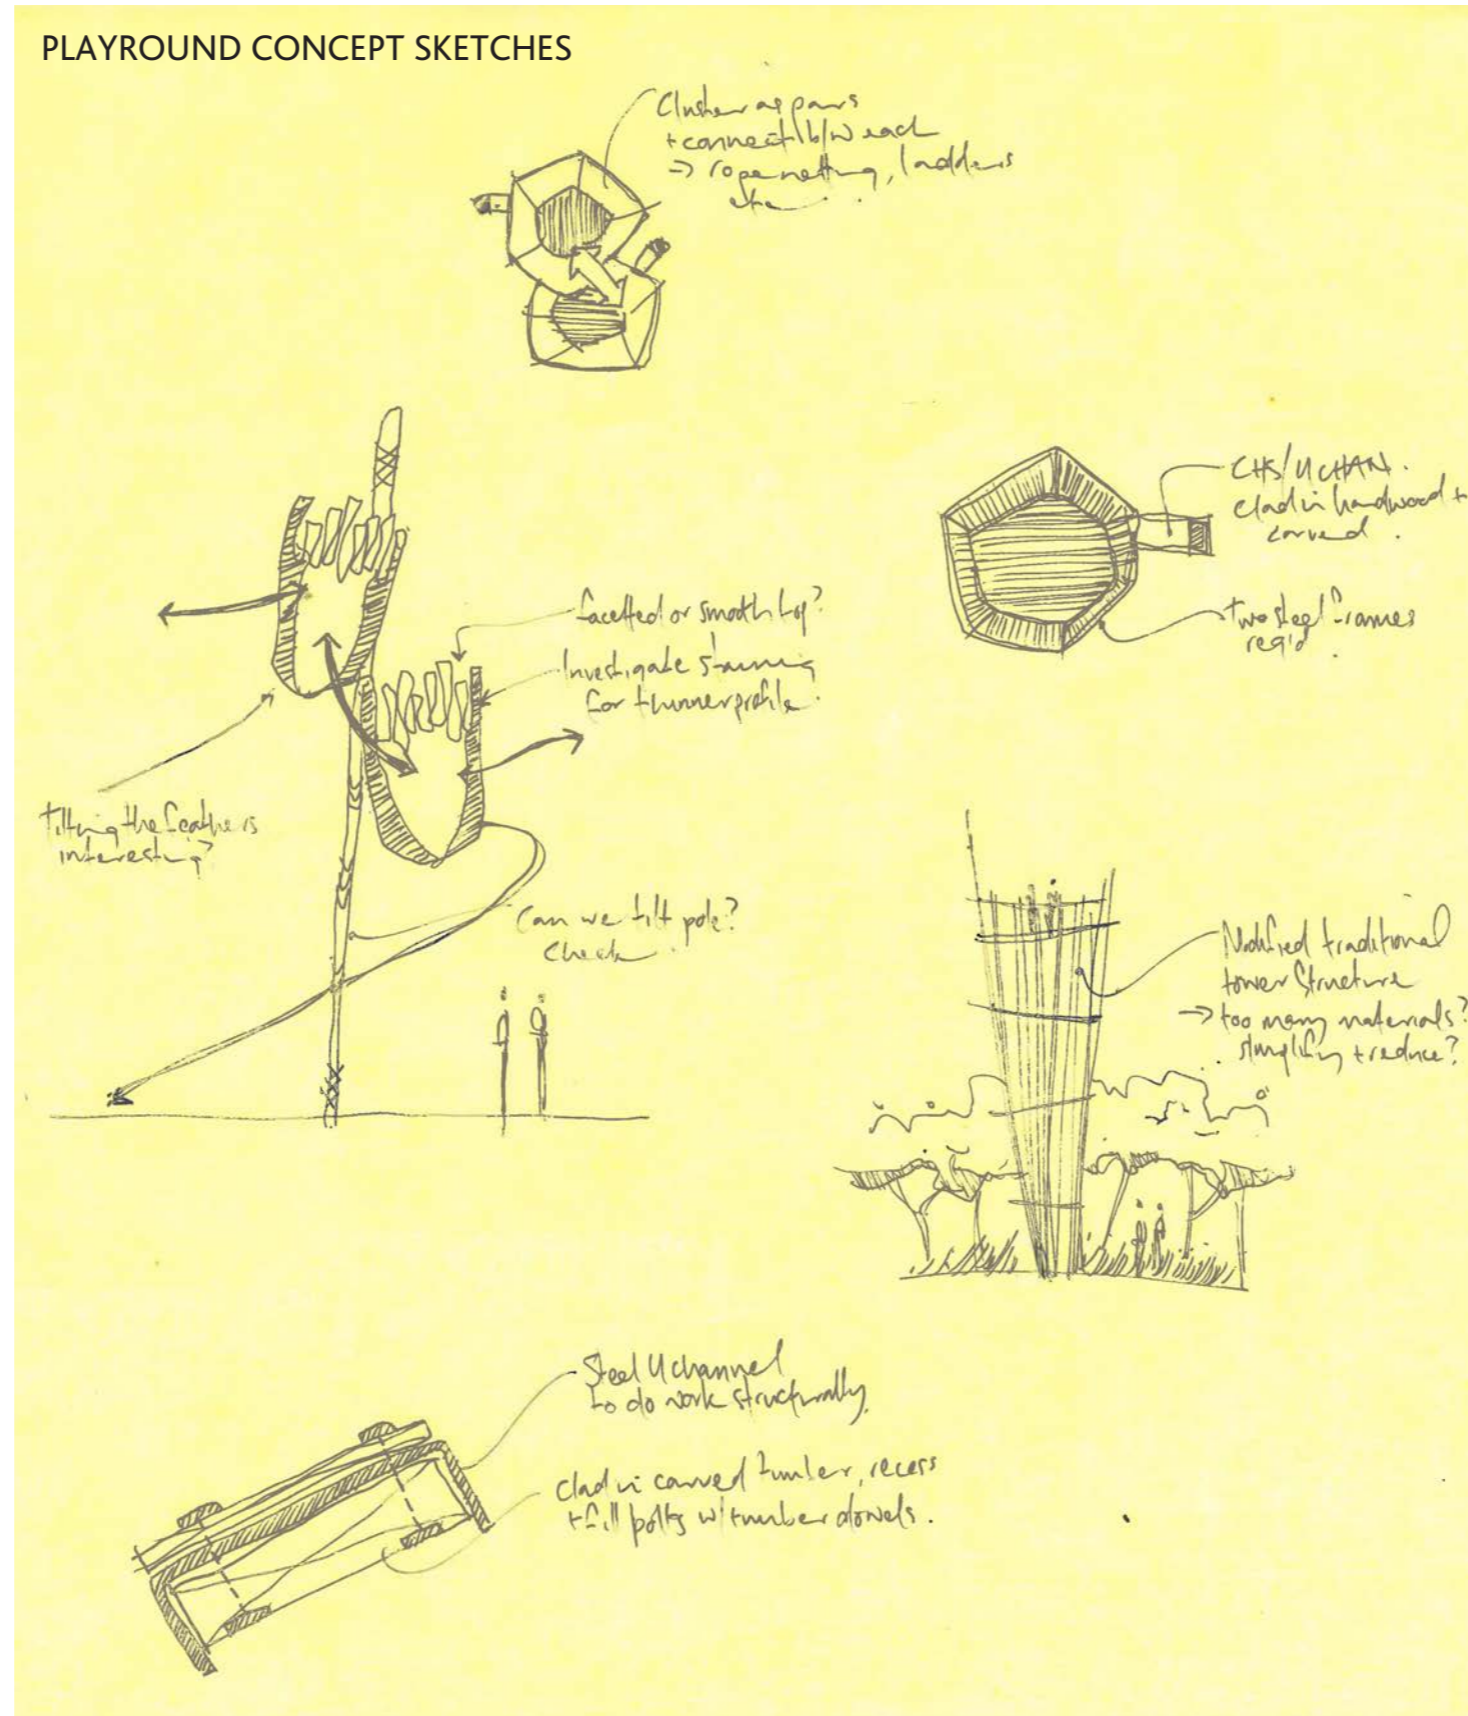 PLAYROUND CONCEPT SKETCHES
Cluster as pairs
+ connect b/w each
→ rope netting, ladders
etc.
CHS/UCHAN.
clad in hardwood +
carved.
facetted or smooth top?
two steel frames
req'd.
Investigate
for thinner profile.
tilting the feathers
interesting?
Can we tilt pole?
Check.
Modified traditional
tower structure
→ too many materials?
simplify + reduce?
Steel U channel
to do work structurally.
clad in carved timber, recess
+ fill bolts w/ timber dowels.